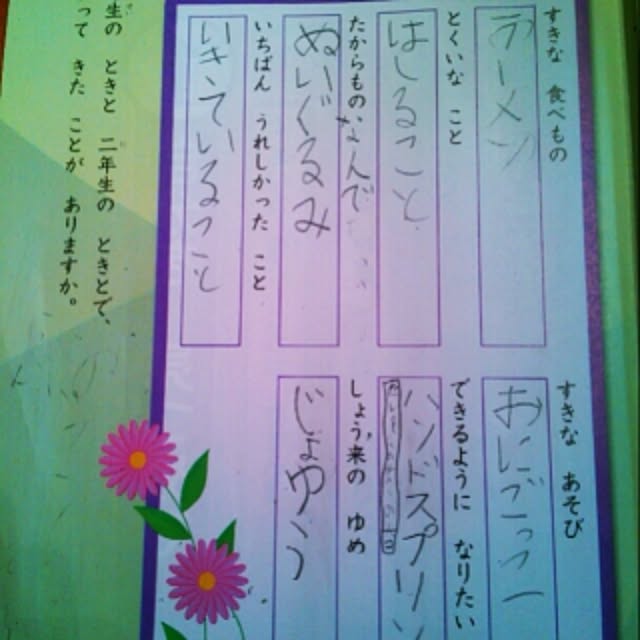 すきな 食べもの
ラーメン
とくいな こと
はしること
たからもの
なんで
ぬいぐるみ
いちばん うれしかった こと
いきていること
すきな あそび
おにごっこ
できるように なりたい
ハンドスプリン
しょう来の ゆめ
じょゆう
生の ときと 二年生の ときとで、
って きた ことが ありますか。